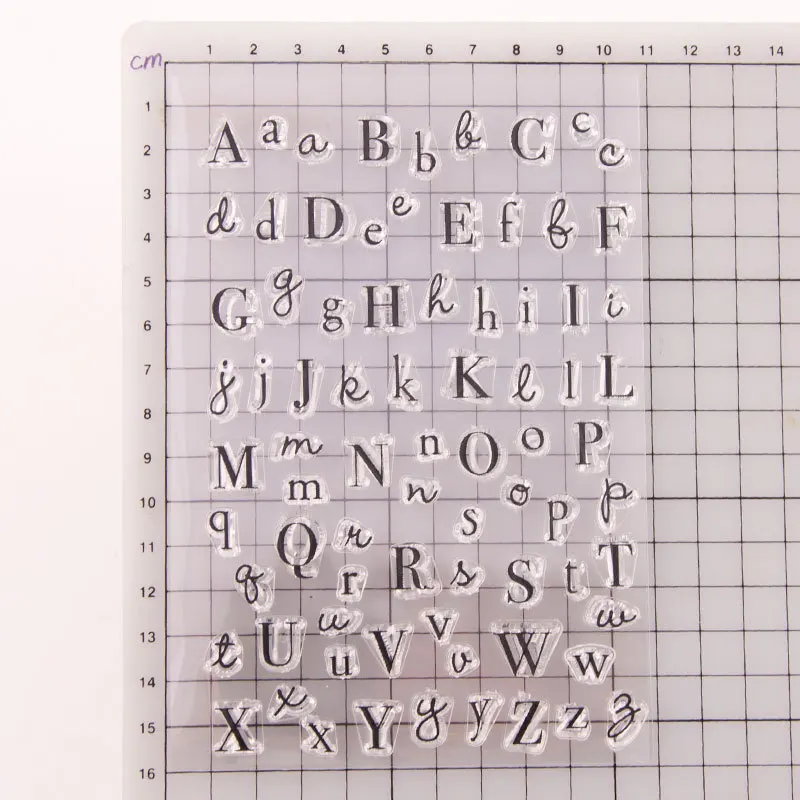 1 2 3 4 5 6 7 8 9 10 11 12 13 14
cm
1
A a a B b b C c c
2
3
d d D e e E f f F
4
5
G g g H h h i I i
6
7
j j J k k K l l L
8
M m m N n n O o o P p p
9
10
q q Q r r R s s S t T
11
12
t U u u V v v W w w
13
14
X x x Y y y Z z z
15
16